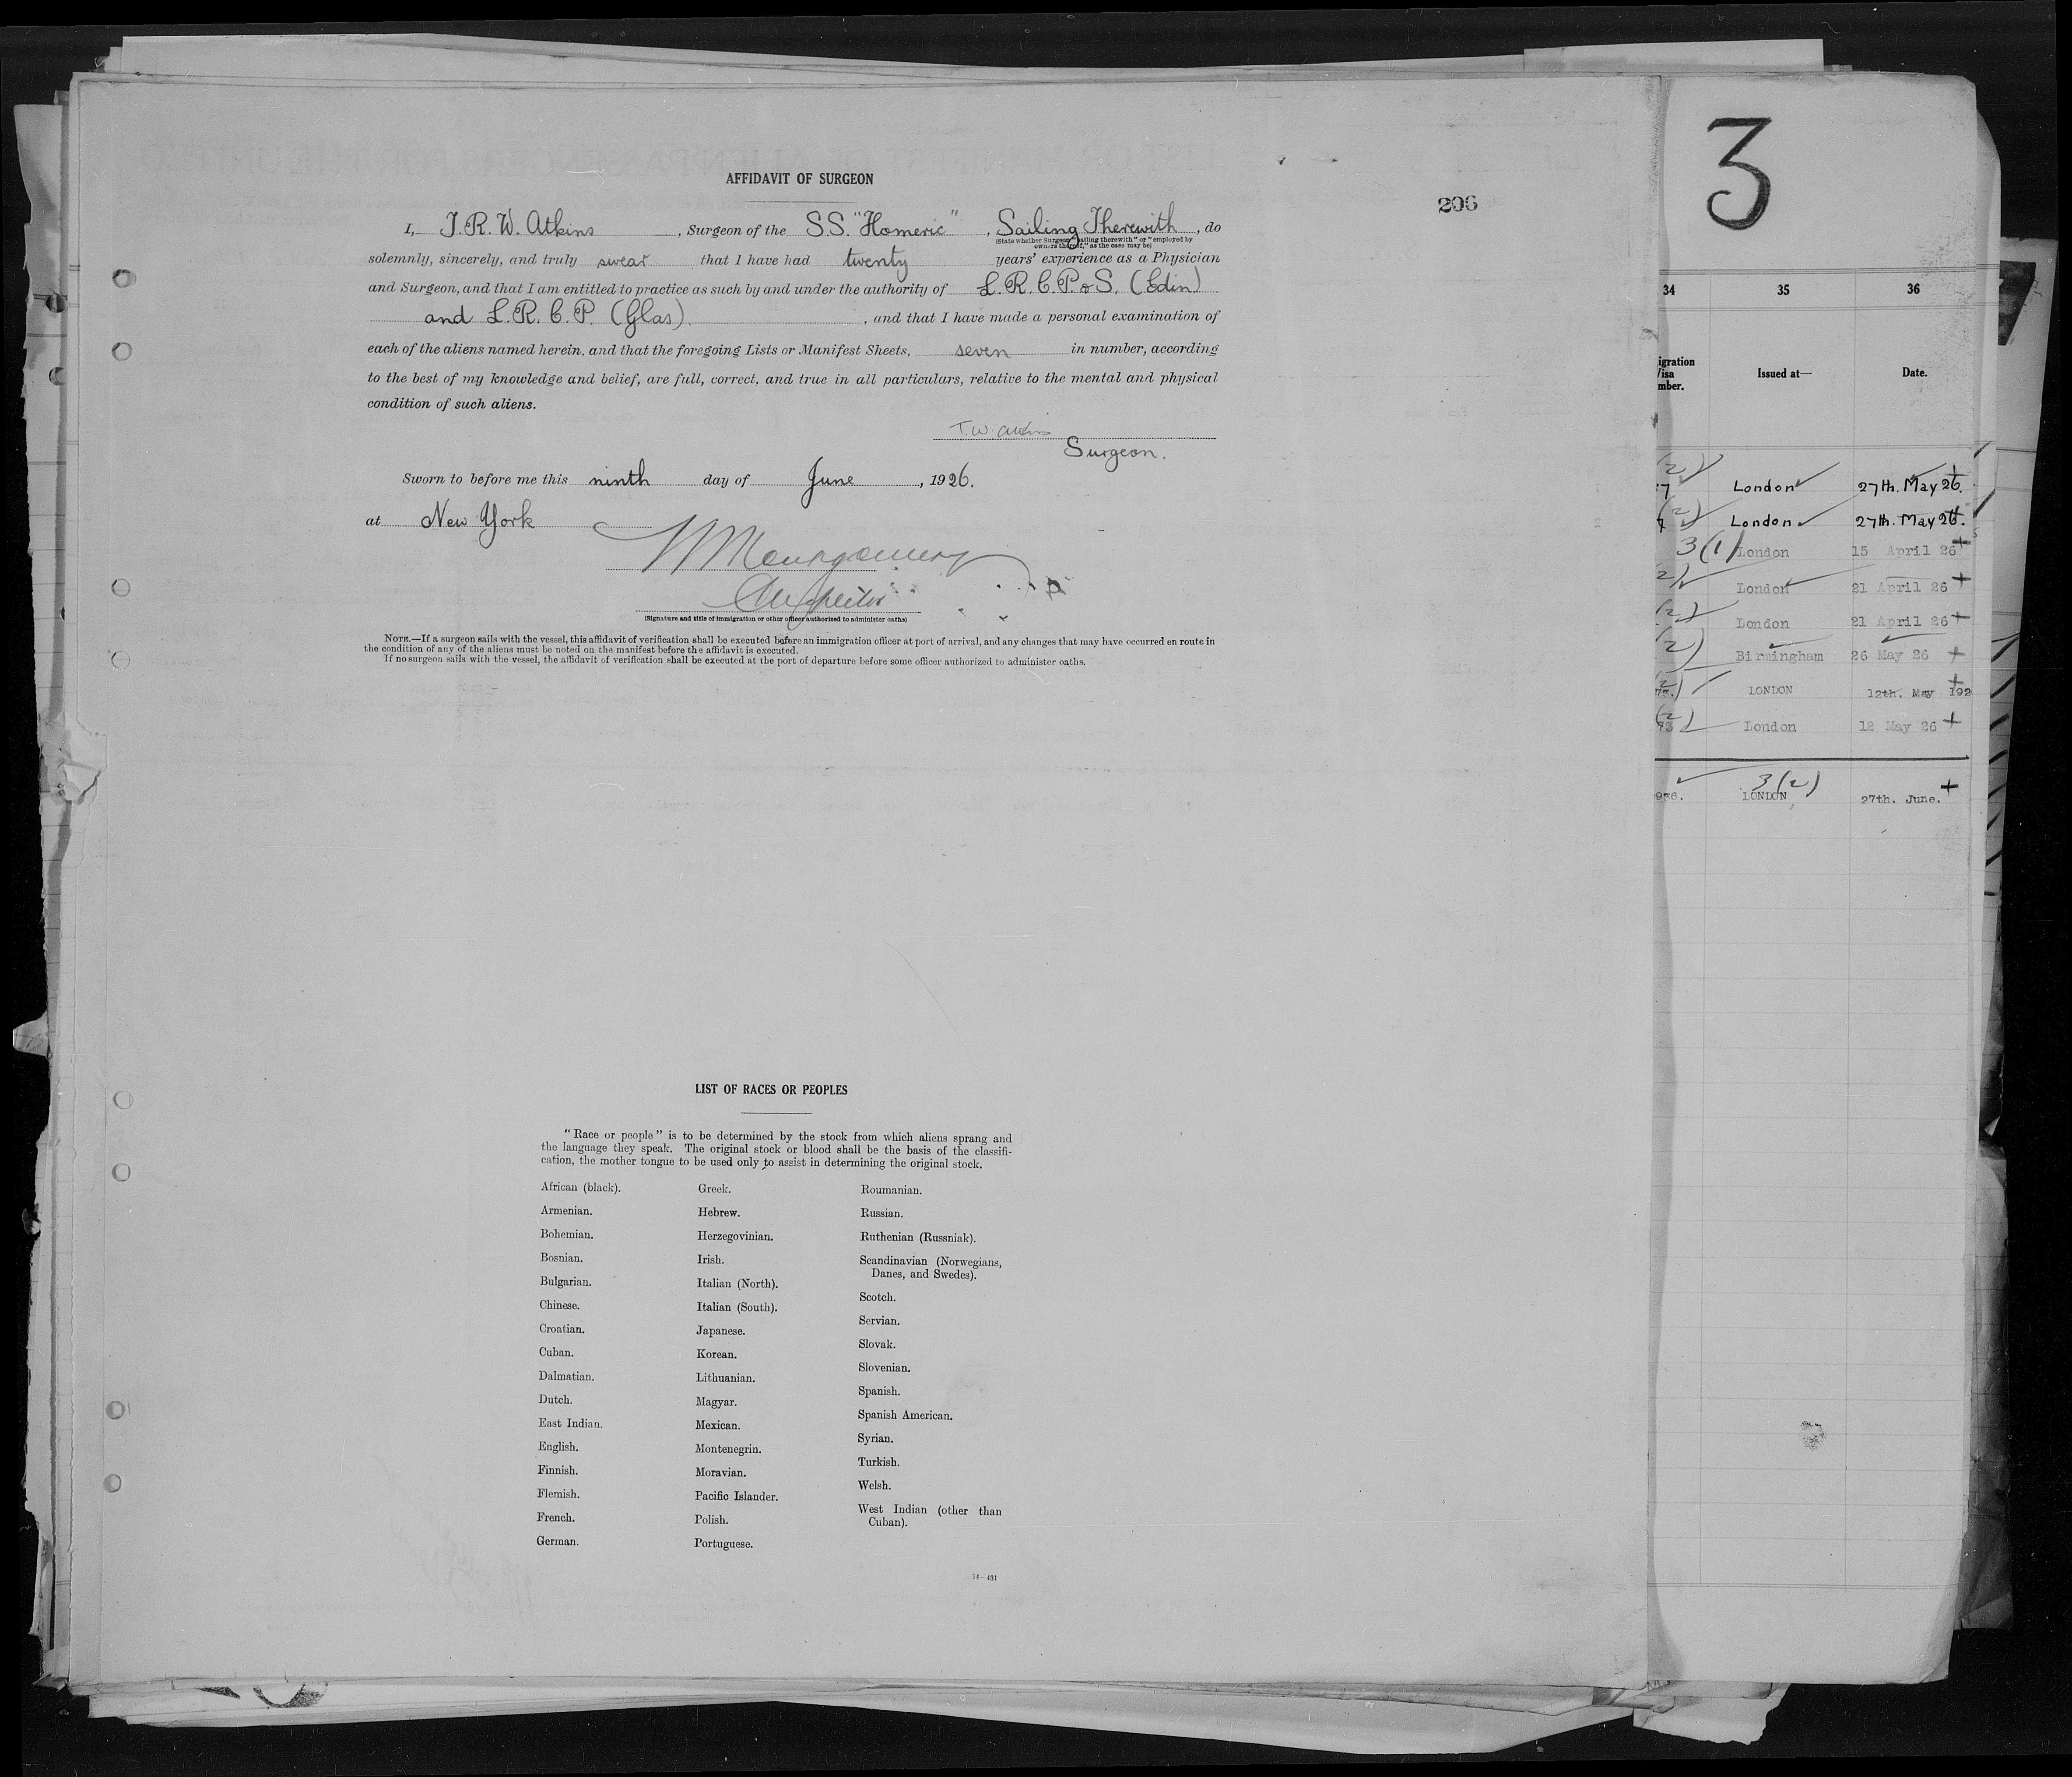 AFFIDAVIT OF SURGEON
206
I, J. R. W. Atkins, Surgeon of the S.S. "Homeric", Sailing Therewith, do
(State whether Surgeon "sailing therewith" or "employed by
owners thereof," as the case may be)
solemnly, sincerely, and truly swear that I have had twenty years' experience as a Physician
and Surgeon, and that I am entitled to practice as such by and under the authority of L.R.C.P. & S. (Edin)
and L.R.C.P. (Glas)., and that I have made a personal examination of
each of the aliens named herein, and that the foregoing Lists or Manifest Sheets, seven in number, according
to the best of my knowledge and belief, are full, correct, and true in all particulars, relative to the mental and physical
condition of such aliens.
T. W. Atkins
Surgeon.
Sworn to before me this ninth day of June, 1926.
at New York
Montgomery
(Signature and title of immigration or other officer authorized to administer oaths)
NOTE.—If a surgeon sails with the vessel, this affidavit of verification shall be executed before an immigration officer at port of arrival, and any changes that may have occurred en route in
the condition of any of the aliens must be noted on the manifest before the affidavit is executed.
If no surgeon sails with the vessel, the affidavit of verification shall be executed at the port of departure before some officer authorized to administer oaths.
LIST OF RACES OR PEOPLES
"Race or people" is to be determined by the stock from which aliens sprang and
the language they speak. The original stock or blood shall be the basis of the classifi-
cation, the mother tongue to be used only to assist in determining the original stock.
African (black).
Armenian.
Bohemian.
Bosnian.
Bulgarian.
Chinese.
Croatian.
Cuban.
Dalmatian.
Dutch.
East Indian.
English.
Finnish.
Flemish.
French.
German.
Greek.
Hebrew.
Herzegovinian.
Irish.
Italian (North).
Italian (South).
Japanese.
Korean.
Lithuanian.
Magyar.
Mexican.
Montenegrin.
Moravian.
Pacific Islander.
Polish.
Portuguese.
Roumanian.
Russian.
Ruthenian (Russniak).
Scandinavian (Norwegians,
Danes, and Swedes).
Scotch.
Servian.
Slovak.
Slovenian.
Spanish.
Spanish American.
Syrian.
Turkish.
Welsh.
West Indian (other than
Cuban).
14—431
3
34 35 36
igration
Visa
mber.
Issued at—
Date.
(2) London 27th. May 26.
(2) London 27th. May 26.
3(1) London 15 April 26
2) London 21 April 26
(2) London 21 April 26
2) Birmingham 26 May 26
(2) LONDON 12th. May 192
(2) London 12 May 26
3(2)
LONDON 27th. June.